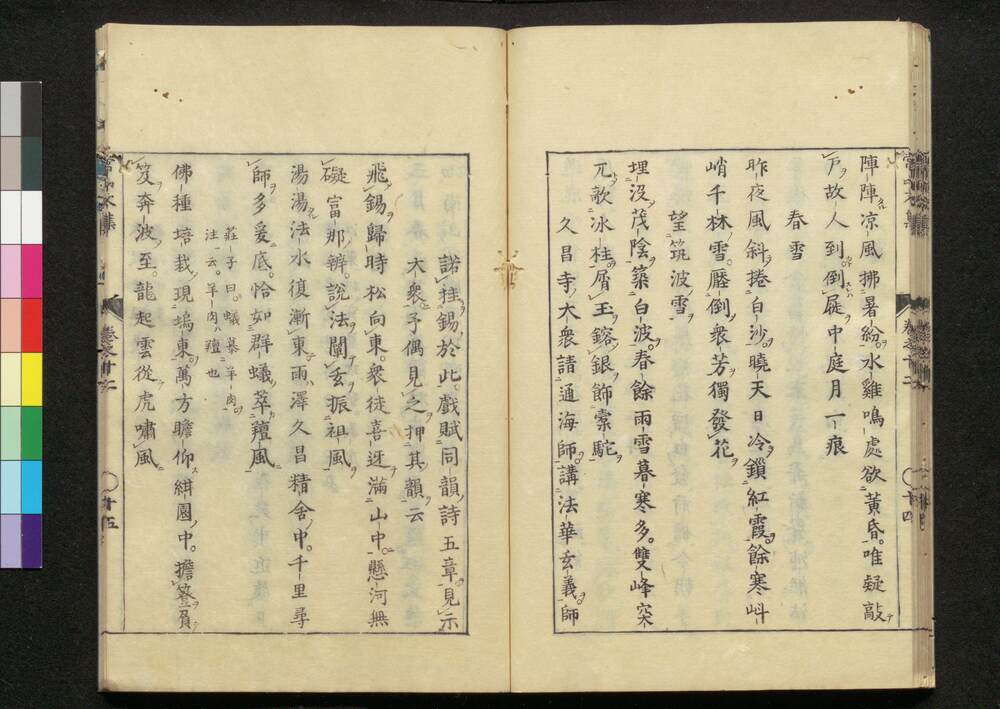 陣陣凉風拂暑紛水雞鳴處欲黃昏唯疑敲
戶故人到倒屣中庭月一痕
春雪
昨夜風斜捲白沙曉天日冷鎖紅霞餘寒𪨶
峭千林雪壓倒衆芳獨發花
望筑波雪
埋沒茂陰築白波春餘雨雪暮寒多雙峰突
兀歌冰柱屑玉鎔銀飾橐駝
久昌寺大衆請通海師講法華玄義師
諾挂錫於此戲賦同韻詩五章見示
大衆予偶見之押其韻云
飛錫歸時松向東衆徒喜迓滿山中懸河無
礙富那辨說法闡玄振祖風
湯湯法水復漸東雨澤久昌精舍中千里尋
師多爰底恰如群蟻萃羶風
莊子曰蟻慕羊肉
注云羊肉羶也
佛種培栽現塢東萬方瞻仰紺園中擔簦負
笈奔波至龍起雲從虎嘯風
卷之廿二
廿五
廿四